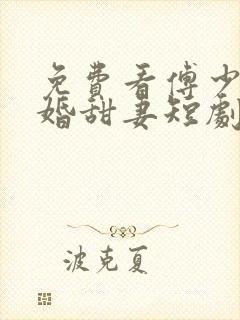 免費看傅少
婚甜妻短劇
波克夏